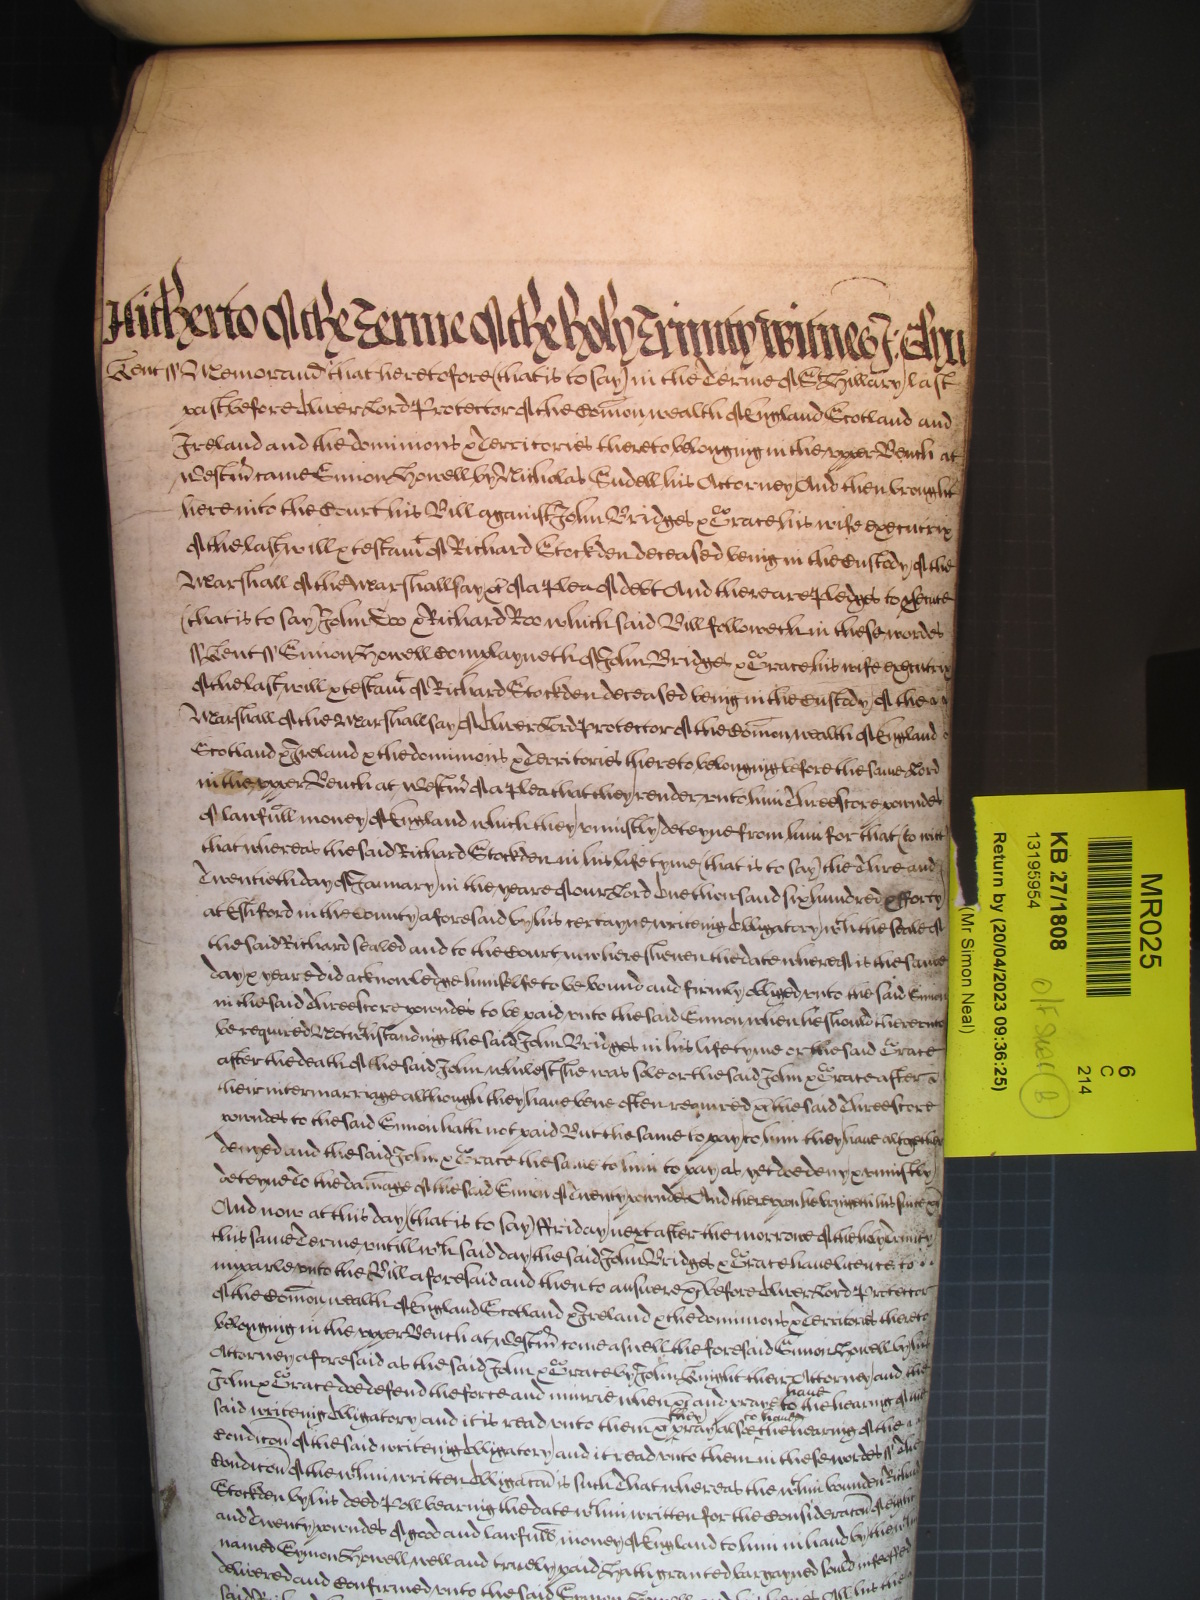 Hitherto of the Terme of the holy Trinity witnes J: Glyn
Kent ss Memorand that heretofore (that is to say) in the Terme of St Hillary last
past before Oliver Lord Protector of the Comon wealth of England Scotland and
Ireland and the dominions & Territories thereto belonging in the upper Bench at
Westmr came Simon Howell by Nicholas Sudell his Attorney And then brought
here into the Court his Bill against John Bridges & Grace his wife executrix
of the last will & testamt of Richard Stockden deceased being in the Custody of the
Marshall of the Marshallsay &c of a plea of debt And there are pledges to psecute
(that is to say) John Doo & Richard Roo which said Bill followeth in these wordes
ss Kent ss Simon Howell Complayneth of John Bridges & Grace his wife executrix
of the last will & testamt of Richard Stockden deceased being in the Custody of the
Marshall of the Marshallsay of Oliver Lord Protector of the Comon wealth of England
Scotland & Ireland & the dominions & Territories thereto belonging before the same Lord
in the upper Bench at Westmr of a plea that they render unto him Threescore powndes
of lawfull money of England which they uniustly deteyne from him for that (to witt)
that whereas the said Richard Stockden in his life tyme (that is to say) the Three and
Twentieth day of January in the yeare of our Lord One thousand six hundred & fforty
at Eshford in the County aforesaid by his certayne writeing Obligatory wth the seale of
the said Richard sealed and to the Court now here shewen the date whereof is the same
day & yeare did acknowledge himselfe to be bound and firmly obliged unto the said Simon
in the said Threescore powndes to be paid unto the said Simon when he should thereunto
be required Notwthstanding the said John Bridges in his life tyme or the said Grace
after the death of the said John whilest she was sole or the said John & Grace after
their intermarriage although they have bene often required &c the said Threescore
powndes to the said Simon hath not paid But the same to pay to him they have altogether
denyed and the said John & Grace the same to him to pay as yet doe deny & uniustly
deteyne To the damage of the said Simon of Twenty powndes And thereupon he bringeth his suite &c
And now at this day (that is to say) ffriday next after the morrowe of the holy Trinity
this same Terme untill wch said day the said John Bridges & Grace have licence to
imparle unto the Bill aforesaid and then to answere &c before Oliver Lord Protector
of the Comon wealth of England Scotland & Ireland & the dominions & Territories thereto
belonging in the upper Bench at Westmr come aswell the foresaid Simon Howell by his
Attorney aforesaid as the said John & Grace by John Knight their Attorney and the
John & Grace doe defend the force and iniurie when &c and pray to have the hearing of the
said writeing Obligatory and it is read unto them &c they pray also to have the hearing of the
Condicon of the said writeing Obligatory and it read unto them in these wordes ss The
Condicon of the wthin written Obligacon is such That whereas the wthin bounden Richard
Stockden by his deed Poll bearing the date wthin written for the Consideracon of eight
and Twenty powndes of good and lawfull money of England to him in hand by the wthin
named Symon Howell well and truely paid Hath granted bargayned sould infeoffed
delivered and Confirmed unto the said Symon Howell
MR025
6
C
214
KB 27/1808
13195954
Return by (20/04/2023 09:36:25)
(Mr Simon Neal)
B